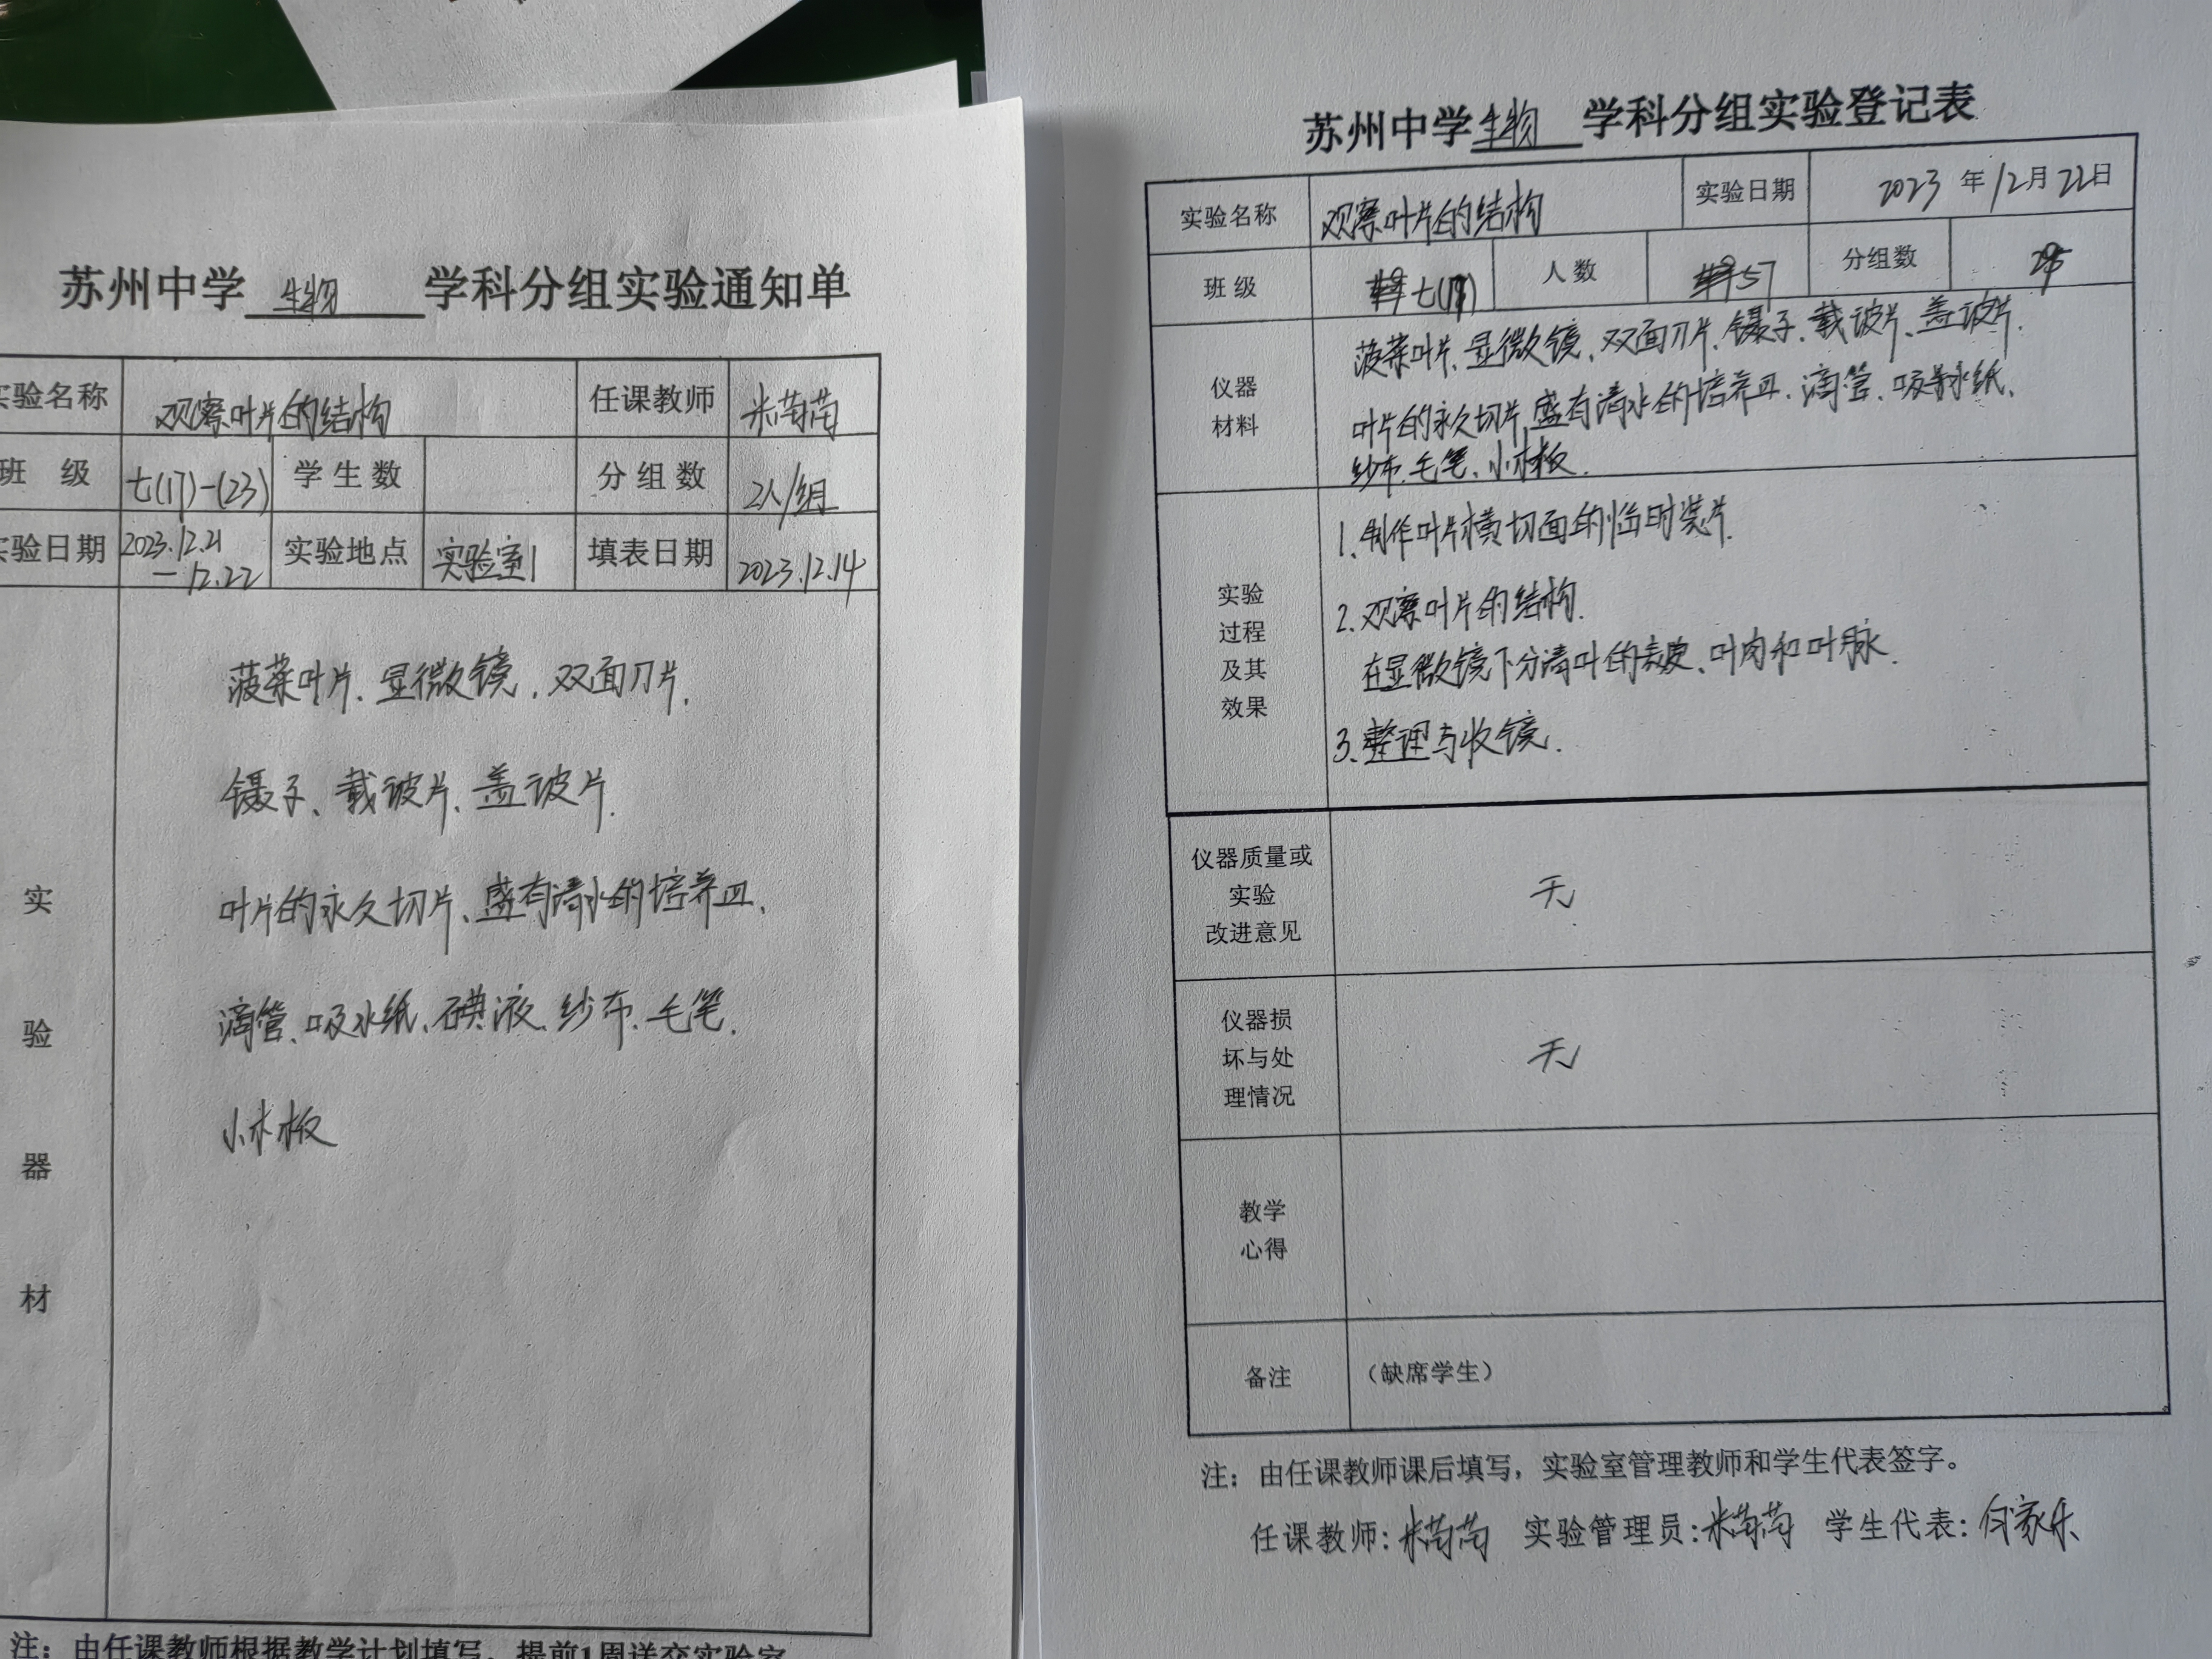 苏州中学 生物 学科分组实验通知单
实验名称 观察叶片的结构 任课教师 米苗苗
班 级 七(17)-(23) 学生数 分组数 2人/组
实验日期 2023.12.21 — 12.22 实验地点 实验室1 填表日期 2023.12.14
实验器材
菠菜叶片、显微镜、双面刀片、
镊子、载玻片、盖玻片、
叶片的永久切片、盛有清水的培养皿、
滴管、吸水纸、碘液、纱布、毛笔、
小木板
注：由任课教师根据教学计划填写，提前1周送交实验室
苏州中学 生物 学科分组实验登记表
实验名称 观察叶片的结构 实验日期 2023 年 12 月 22 日
班 级 人 数 57 分组数
仪器
材料
菠菜叶片、显微镜、双面刀片、镊子、载玻片、盖玻片、
叶片的永久切片、盛有清水的培养皿、滴管、吸水纸、
纱布、毛笔、小木板.
实验
过程
及其
效果
1、制作叶片横切面的临时装片.
2、观察叶片的结构.
在显微镜下分清叶的表皮、叶肉和叶脉.
3、整理与收镜.
仪器质量或
实验
改进意见
无
仪器损
坏与处
理情况
无
教学
心得
备注 （缺席学生）
注：由任课教师课后填写，实验室管理教师和学生代表签字。
任课教师: 米苗苗 实验管理员: 米苗苗 学生代表: